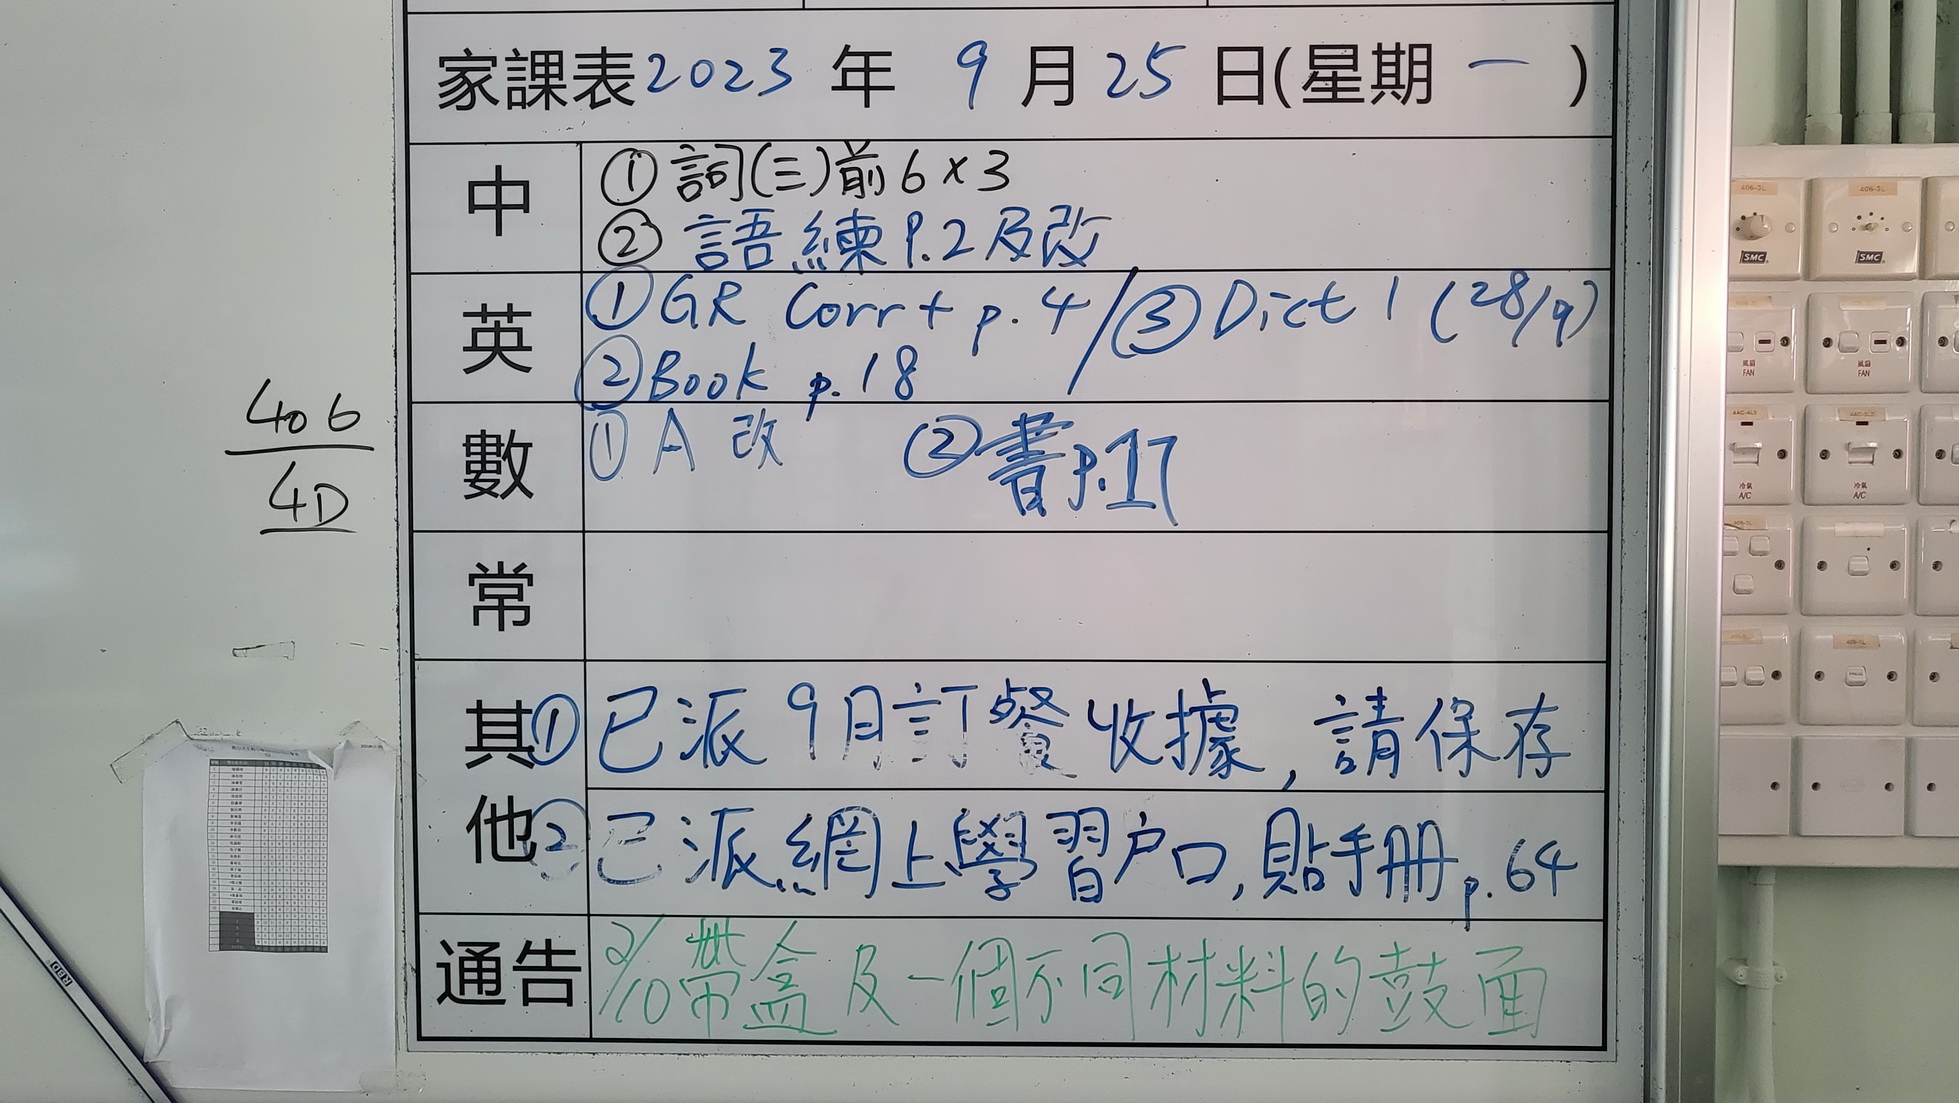 家課表2023年 9月25日(星期一)
中
①詞(三)前6×3
②語練P.2及改
英
①GR Corr + p.4/③Dict 1 (28/9)
②Book p.18
數
①A改 ②書p.17
常
其他
①已派9月訂餐收據,請保存
②已派網上學習户口,貼手冊p.64
通告
2/10帶盒及一個不同材料的鼓面
406
4D
SMC
SMC
風扇
FAN
風扇
FAN
冷氣
A/C
冷氣
A/C